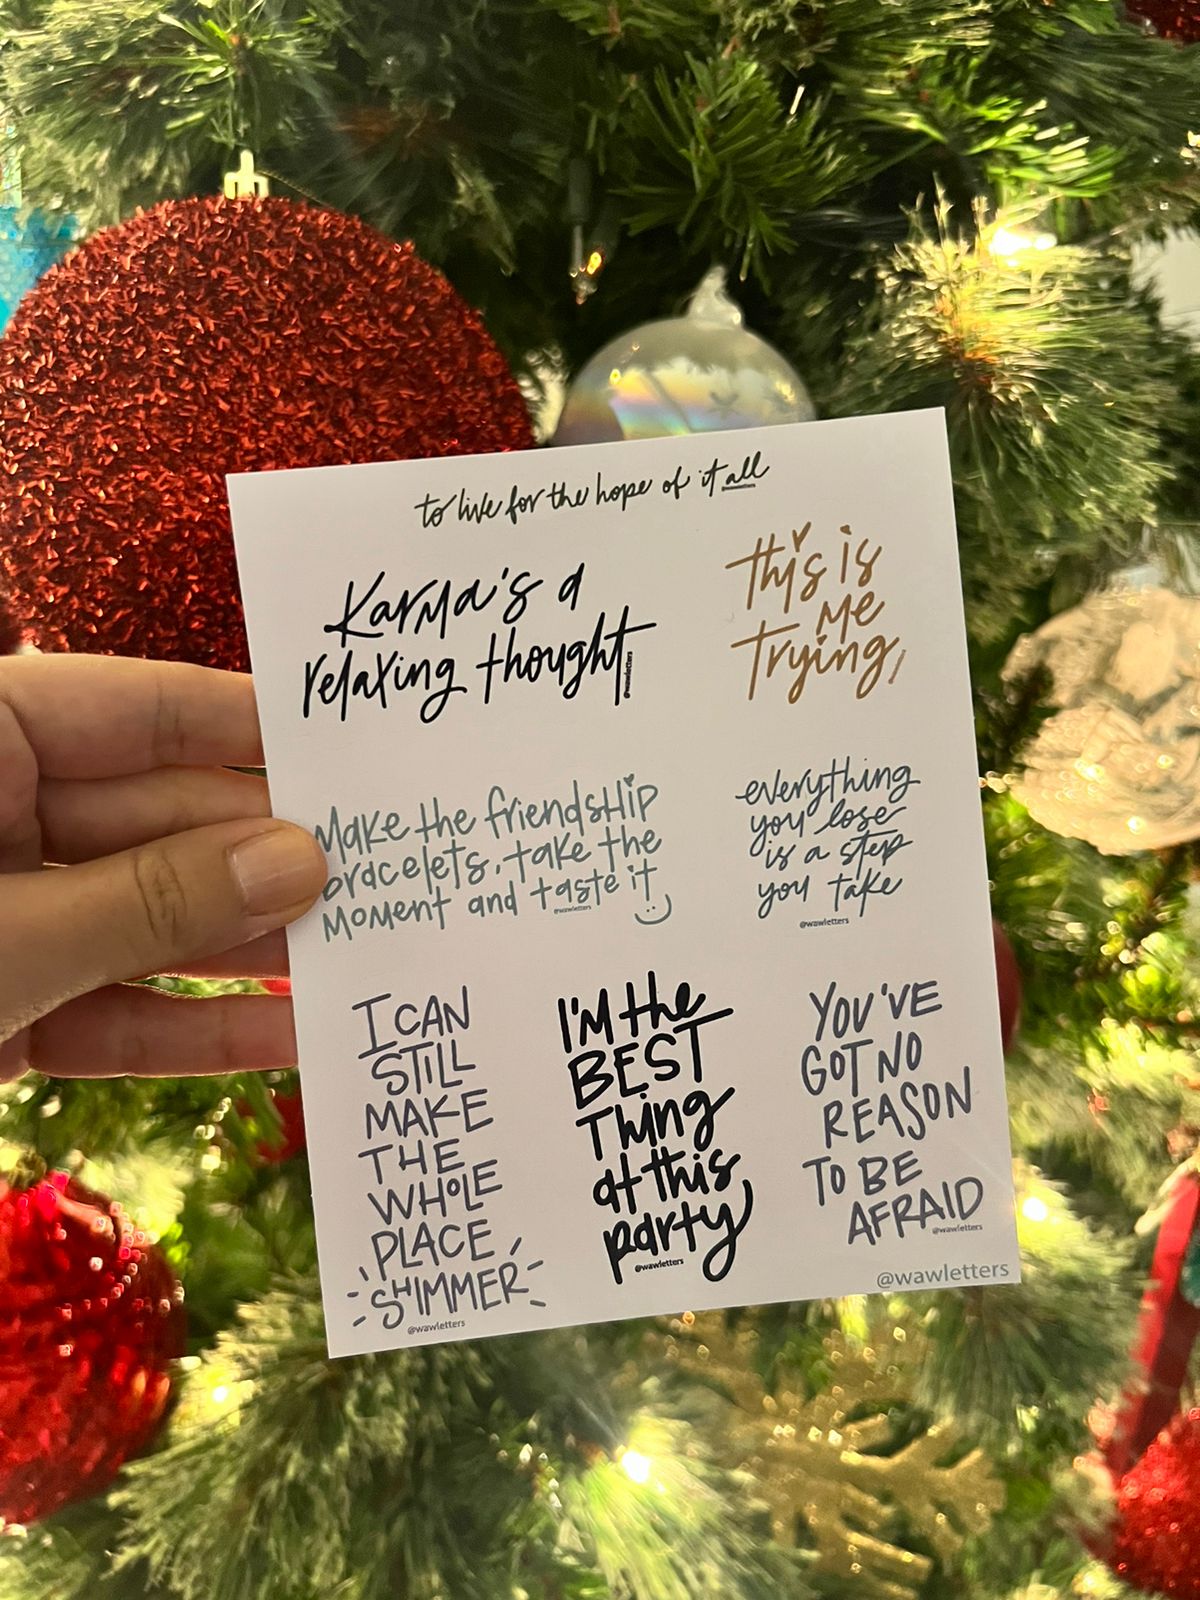 to live for the hope of it all
@wawletters
Karma's a
relaxing thought
@wawletters
this is
me
trying
Make the friendship
bracelets, take the
moment and taste it
@wawletters
everything
you lose
is a step
you take
@wawletters
I CAN
STILL
MAKE
THE
WHOLE
PLACE
SHIMMER
@wawletters
I'M the
BEST
Thing
at this
party
@wawletters
YOU'VE
GOT NO
REASON
TO BE
AFRAID
@wawletters
@wawletters